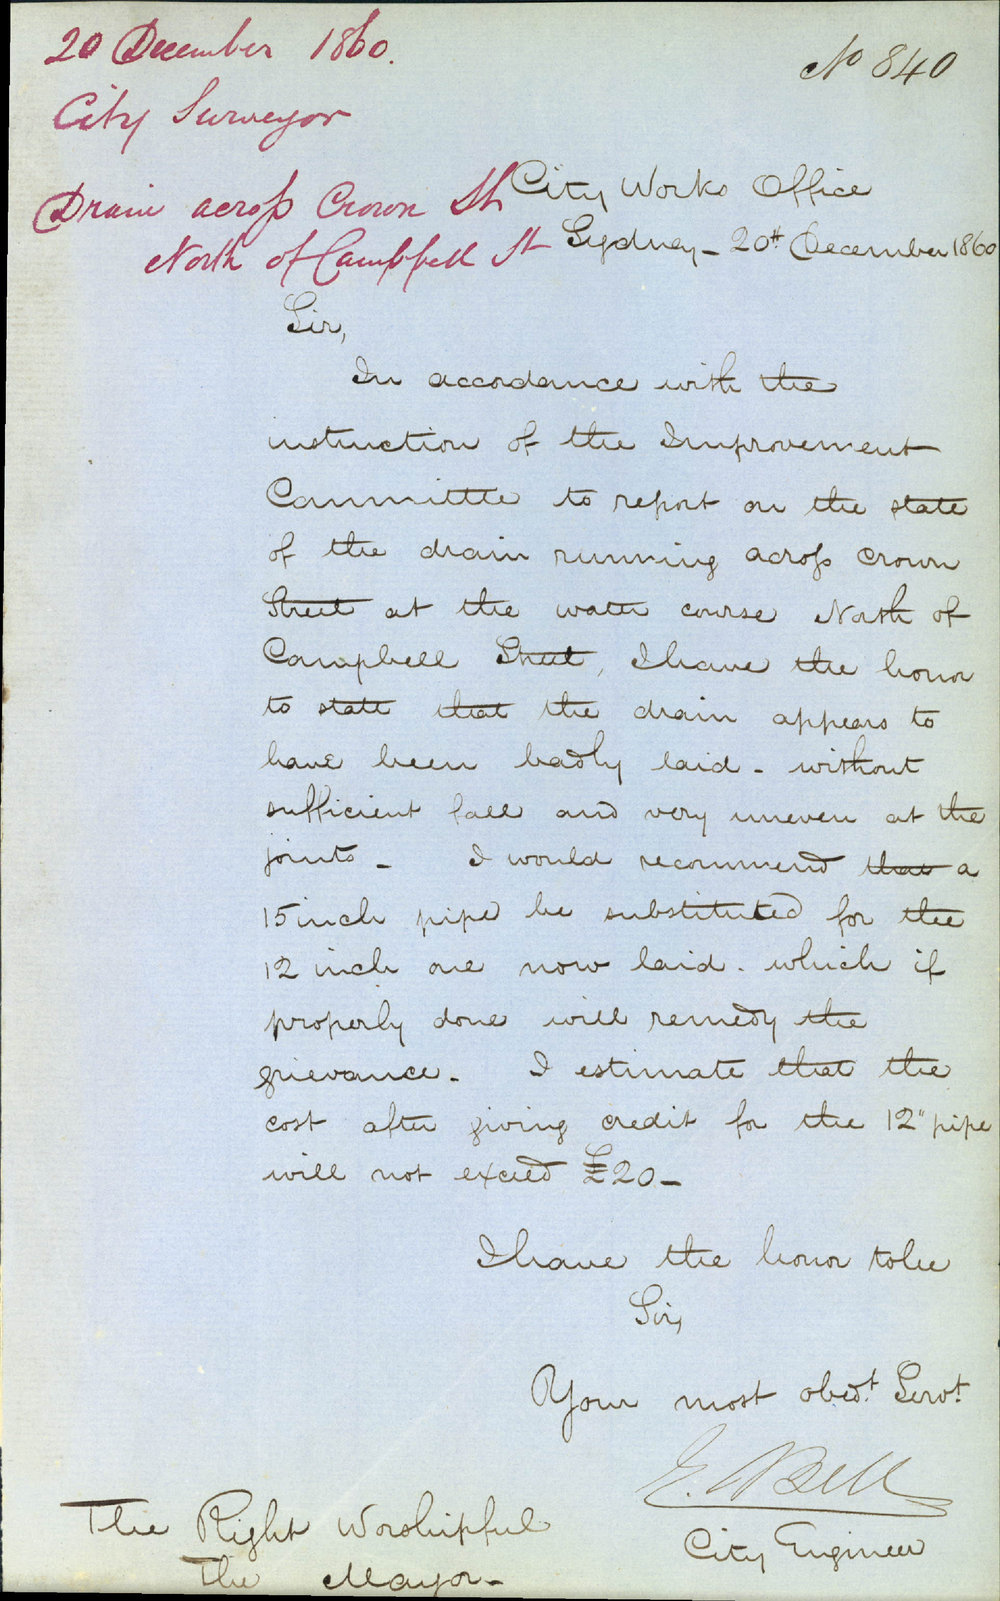 20 December 1860.
No 840
City Surveyor
Drain across Crown St
North of Campbell St
City Works Office
Sydney - 20th December 1860
Sir,
In accordance with the
instruction of the Improvement
Committee to report on the state
of the drain running across Crown
Street at the water course North of
Campbell Street, I have the honor
to state that the drain appears to
have been badly laid - without
sufficient fall and very uneven at the
joints - I would recommend that a
15 inch pipe be substituted for the
12 inch one now laid - which if
properly done will remedy the
grievance - I estimate that the
cost after giving credit for the 12" pipe
will not exceed £20 -
I have the honor to be
Sir,
Your most obedt. Servt.
E. Bell
City Engineer
The Right Worshipful
The Mayor -